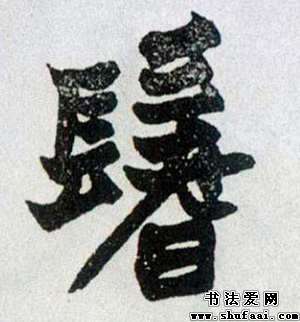 鬐
书法爱网
www.shufaai.com